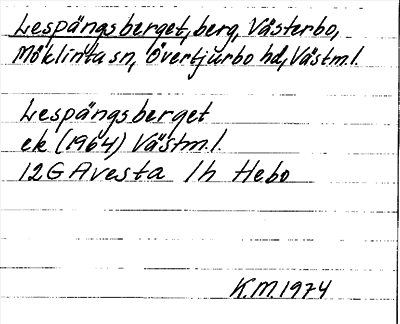 Lespängsberget, berg, Västerbo,
Möklinta sn, Övertjurbo hd, Västm.l.
Lespängsberget
ek (1964) Västm.l.
12G Avesta 1h Hebo
K.M. 1974